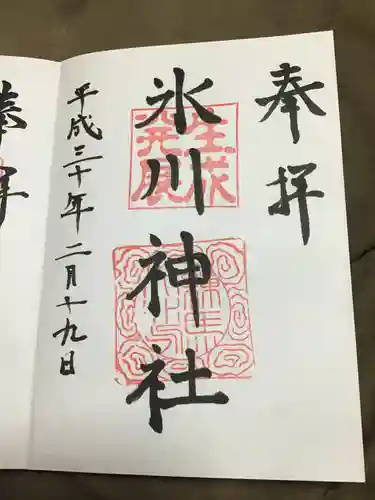 奉拝
氷川神社
生成発展
平成三十年二月十九日
奉拝